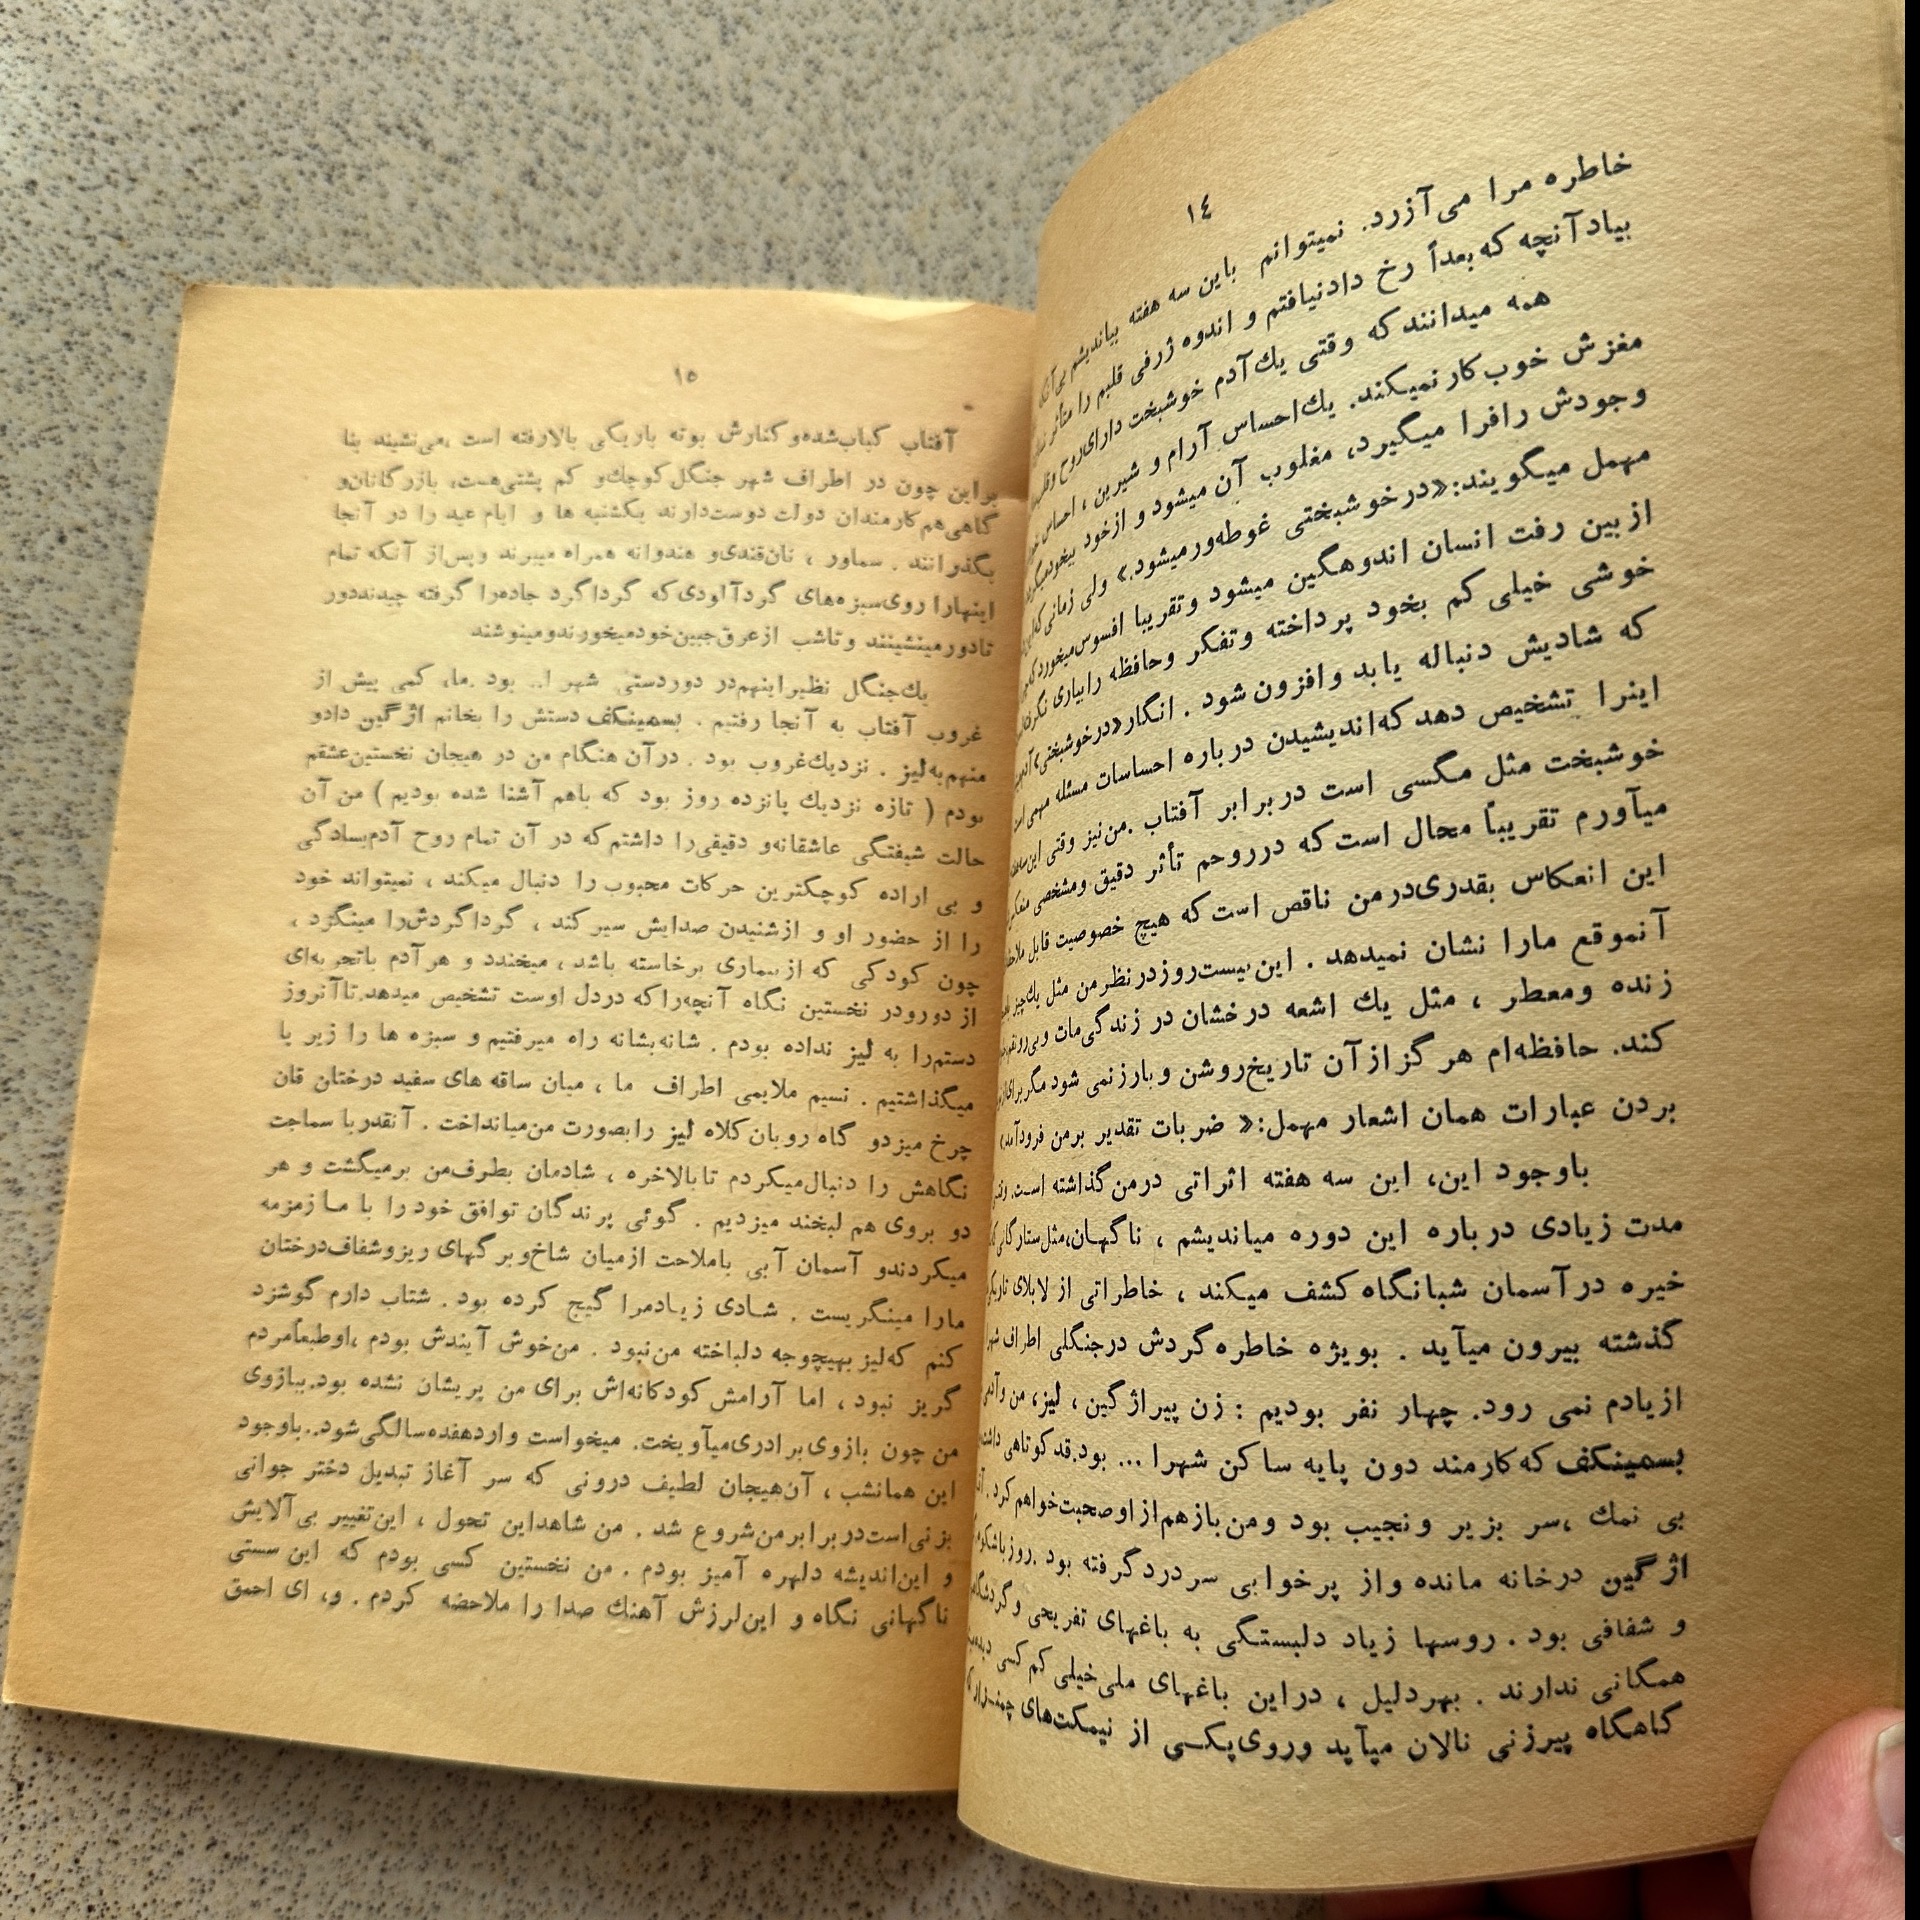 ١٤
خاطره مرا می‌آزرد. نمیتوانم باین سه هفته بیاندیشم بی‌آنکه
بیادآنچه که بعداً رخ دادنیافتم و اندوه ژرفی قلبم را متأثر
همه میدانند که وقتی یك‌آدم خوشبخت دارای‌روح وقلب
مغزش خوب‌کار نمیکند. یك‌احساس آرام و شیرین ، احساس
وجودش رافرا میگیرد، مغلوب آن میشود و ازخود بیخودمیگردد
مهمل میگویند:«درخوشبختی غوطه‌ورمیشود.» ولی زمانی‌که
ازبین رفت انسان اندوهگین میشود وتقریبا افسوس‌میخوردکه
خوشی خیلی کم بخود پرداخته وتفکر وحافظه رابیاری نگرفته
که شادیش دنباله یابد وافزون شود . انگار«درخوشبختی»
اینرا تشخیص دهدکه‌اندیشیدن درباره احساسات مسئله مهمی است
خوشبخت مثل مگسی است دربرابر آفتاب .من‌نیز وقتی
میآورم تقریباً محال است‌که درروحم تأثر دقیق ومشخصی
این انعکاس بقدری‌درمن ناقص است‌که هیچ خصوصیت قابل
آنموقع مارا نشان نمیدهد . این‌بیست‌روزدرنظرمن مثل یك‌چیز
زنده ومعطر ، مثل یك اشعه درخشان در زندگی‌مات وبی‌رونقم
کند. حافظه‌ام هرگزازآن تاریخ‌روشن وبارزنمی شود مگربرای
بردن عبارات همان اشعار مهمل:« ضربات تقدیر برمن فرودآمد»
باوجود این، این سه هفته اثراتی درمن‌گذاشته است.
مدت زیادی درباره این دوره میاندیشم ، ناگهان،مثل‌ستارگانی
خیره درآسمان شبانگاه‌کشف میکند ، خاطراتی از لابلای تاریکی
گذشته بیرون میآید . بویژه خاطره‌گردش درجنگلی اطراف شهر
ازیادم نمی رود. چهار نفر بودیم : زن پیراژگین ، لیز، من و
بسمینکف که‌کارمند دون پایه ساکن شهرا ... بود.قدکوتاهی
بی نمك ،سر بزیر ونجیب بود ومن‌بازهم‌ازاوصحبت‌خواهم‌کرد .
اژگین درخانه مانده واز پرخوابی سردردگرفته بود .روز
و شفافی بود . روسها زیاد دلبستگی به باغهای تفریحی و
همگانی ندارند . بهردلیل ، دراین باغهای ملی‌خیلی کم‌کسی
گاهگاه پیرزنی نالان میآید وروی‌یکـی از نیمکت‌های
١٥
آفتاب کباب‌شده‌وکنارش بوته باریکی بالارفته است ،می‌نشیند بنا
براین چون در اطراف شهر جنگل‌کوچك‌و کم پشتی‌هست، بازرگانان‌و
گاهی‌هم‌کارمندان دولت دوست‌دارند یکشنبه ها و ایام عید را در آنجا
بگذرانند . سماور ، نان‌قندی‌و هندوانه همراه میبرند وپس‌از آنکه تمام
اینهارا روی‌سبزه‌های گردآلودی‌که گرداگرد جاده‌را گرفته چیدنددور
تادورمینشینند وتاشب ازعرق‌جبین‌خودمیخورندومینوشند
یك‌جنگل نظیراینهم‌در دوردستی شهر ا.. بود .ما، کمی پیش از
غروب آفتاب به آنجا رفتیم . بسمینکف دستش را بخانم اژگین دادو
منهم‌به‌لیز . نزدیك‌غروب بود . درآن هنگام من در هیجان نخستین‌عشقم
بودم ( تازه نزدیك پانزده روز بود که باهم آشنا شده بودیم ) من آن
حالت شیفتگی عاشقانه‌و دقیقی‌را داشتم‌که در آن تمام روح آدم‌بسادگی
و بی اراده کوچکترین حرکات محبوب را دنبال میکند ، نمیتواند خود
را از حضور او و ازشنیدن صدایش سیرکند ، گرداگردش‌را مینگرد ،
چون کودکی که ازبیماری برخاسته باشد ، میخندد و هرآدم باتجربه‌ای
از دورودر نخستین نگاه آنچه‌راکه دردل اوست تشخیص میدهد.تاآنروز
دستم‌را به لیز نداده بودم . شانه‌بشانه راه میرفتیم و سبزه ها را زیر پا
میگذاشتیم . نسیم ملایمی اطراف ما ، میان ساقه های سفید درختان قان
چرخ میزدو گاه روبان‌کلاه لیز رابصورت من‌میانداخت . آنقدربا سماجت
نگاهش را دنبال‌میکردم تابالاخره ، شادمان بطرف‌من برمیگشت و هر
دو بروی هم لبخند میزدیم . گوئی پرندگان توافق خودرا با مـا زمزمه
میکردندو آسمان آبی باملاحت ازمیان شاخ‌وبرگهای ریزوشفاف‌درختان
مارا مینگریست . شـادی زیـادمرا گیج کرده بود . شتاب دارم گوشزد
کنم که‌لیز بهیچوجه دلباخته من‌نبود . من‌خوش آیندش بودم ،اوطبعاًمردم
گریز نبود ، اما آرامش‌کودکانه‌اش برای من پریشان نشده بود.ببازوی
من چون بازوی‌برادری‌میآویخت. میخواست واردهفده‌سالگی‌شود..باوجود
این همانشب ، آن‌هیجان لطیف درونی که سر آغاز تبدیل دختر جوانی
بزنی‌است‌دربرابرمن‌شروع شد . من شاهداین تحول ، این‌تغییر بی‌آلایش
و این‌اندیشه دلهره آمیز بودم . من نخستین کسی بودم که این سستی
ناگهانی نگاه و این‌لرزش آهنك صدا را ملاحضه کردم . و، ای احمق